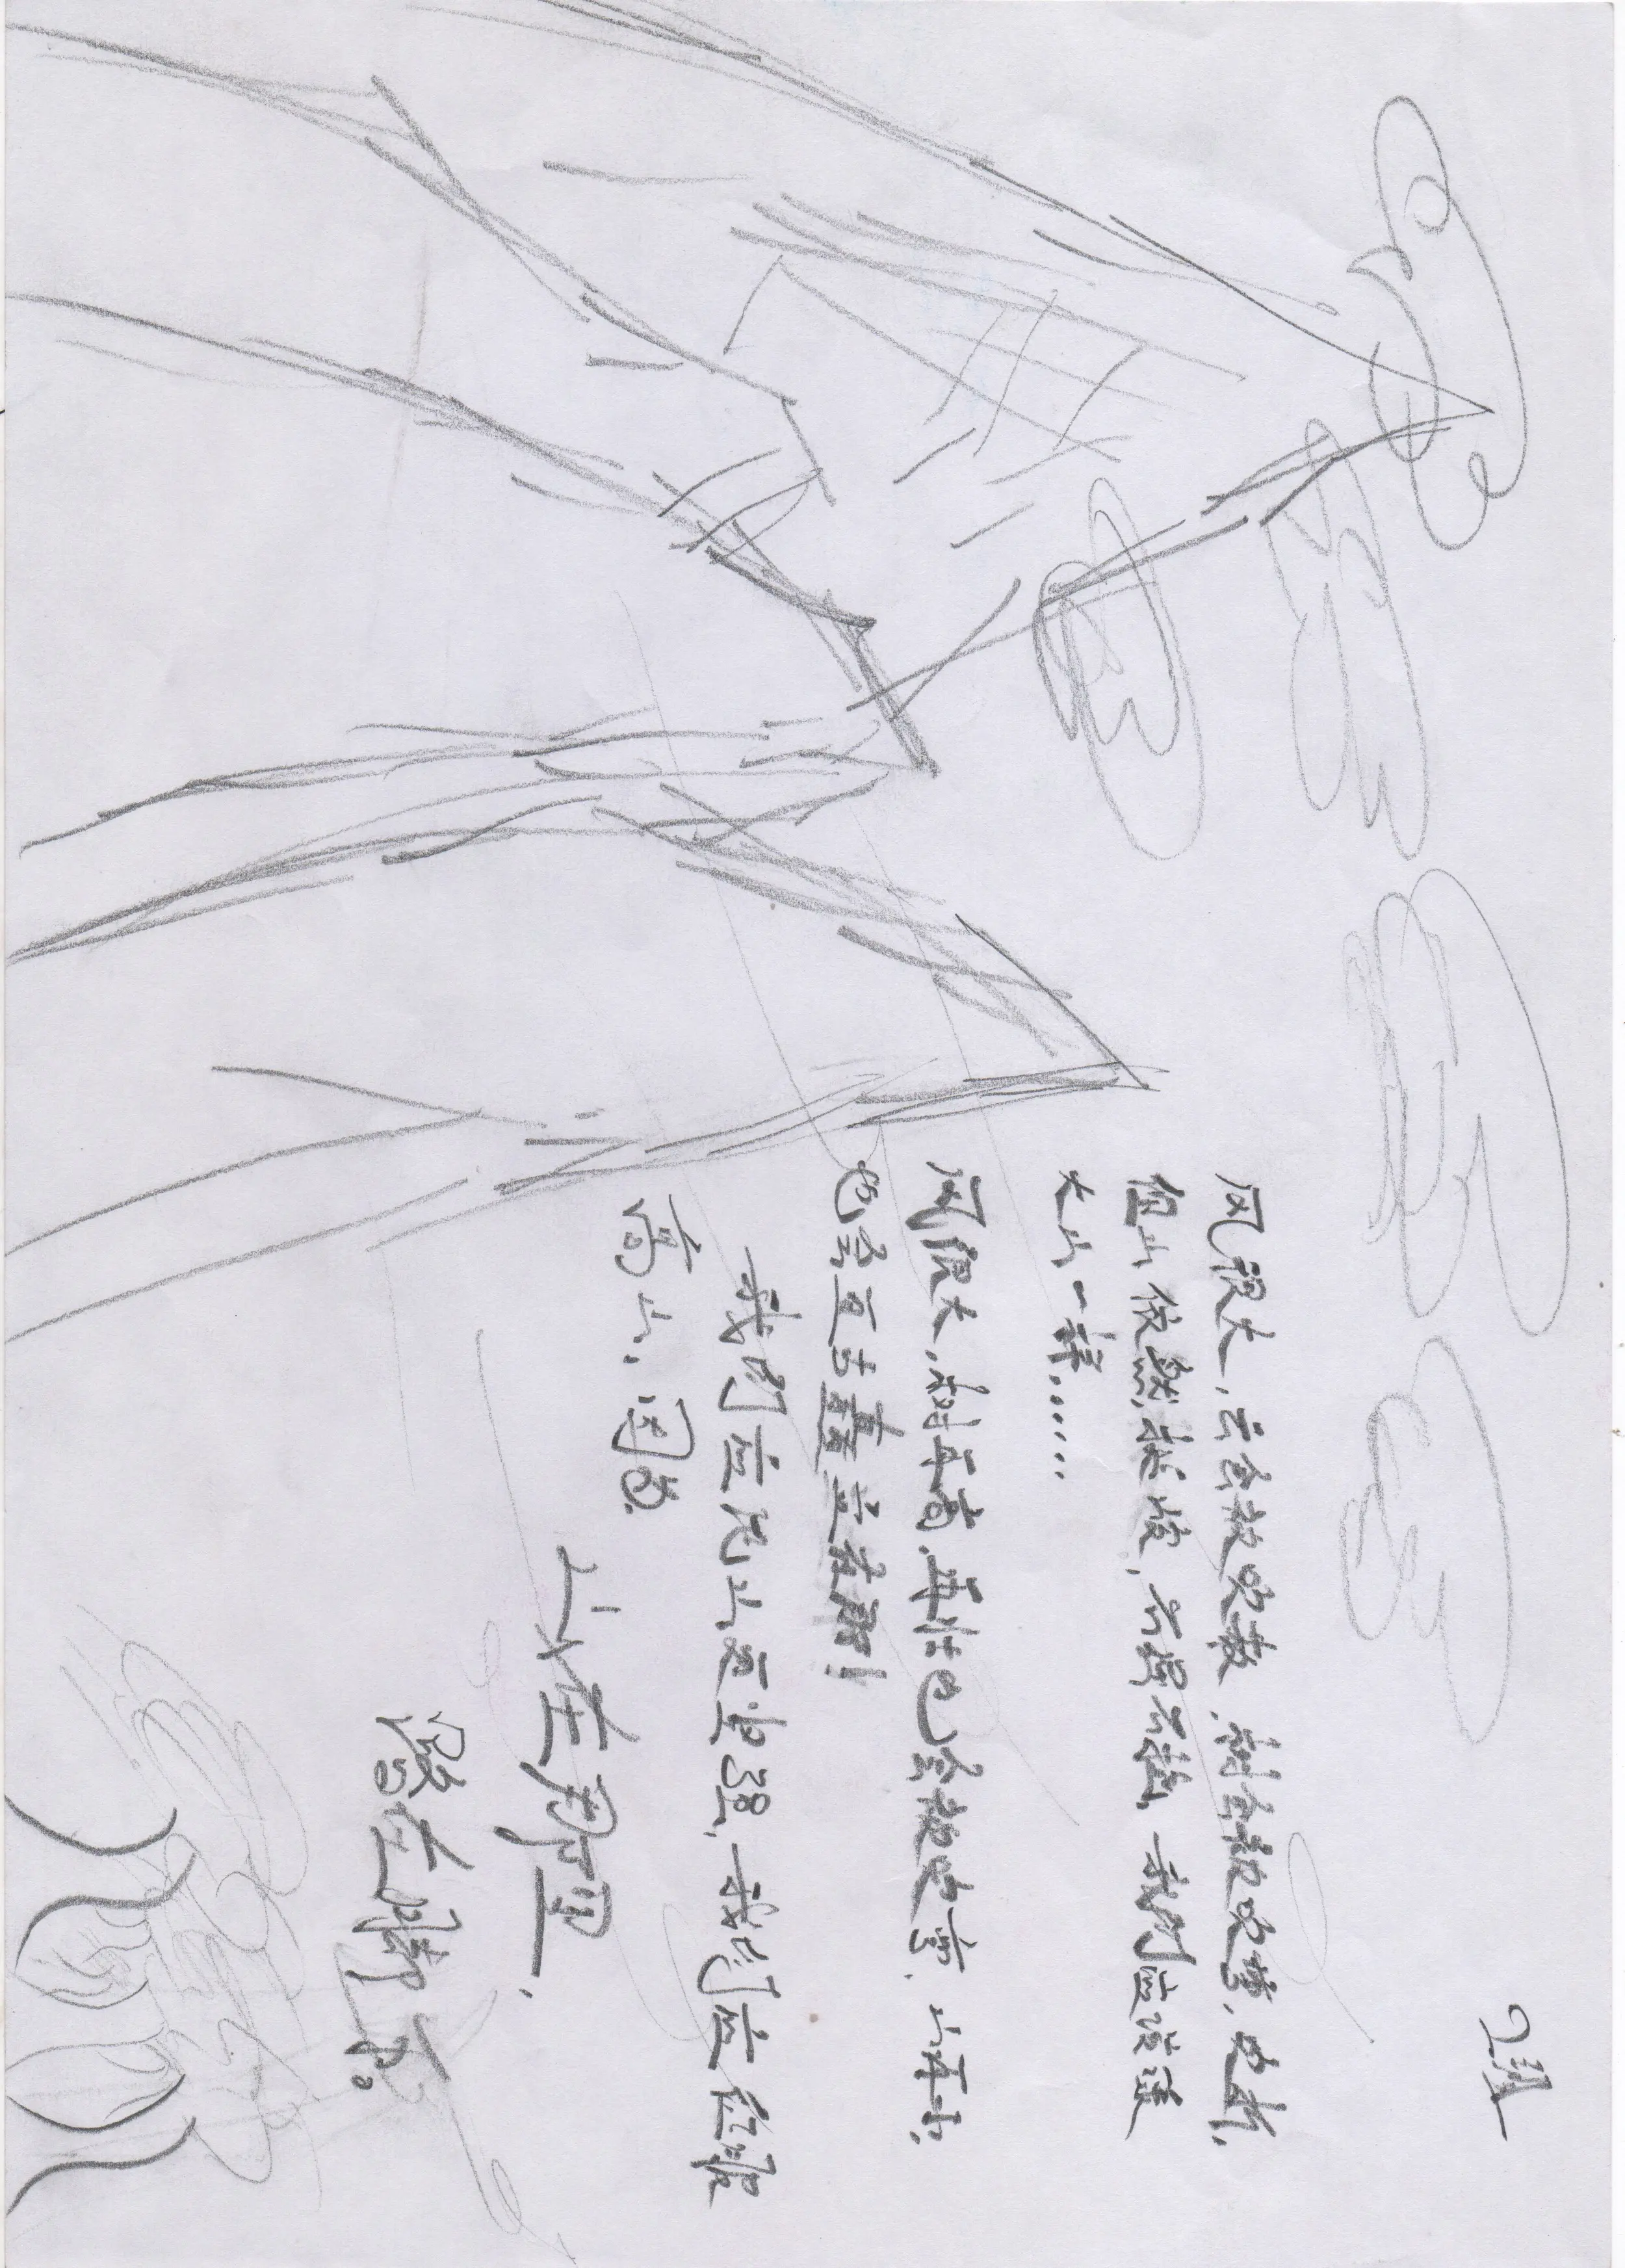 2班
风很大，云会被吹散，树会被吹弯，吹折，
但山依然挺拔，不弯不摇，我们应该送
大山一样……
风很大，树再高，再壮也会被吹弯，山再小，
也会互古矗立在那！
我们应比山更坚强，我们应征服
高山，因为
山在那里，
路在脚下。